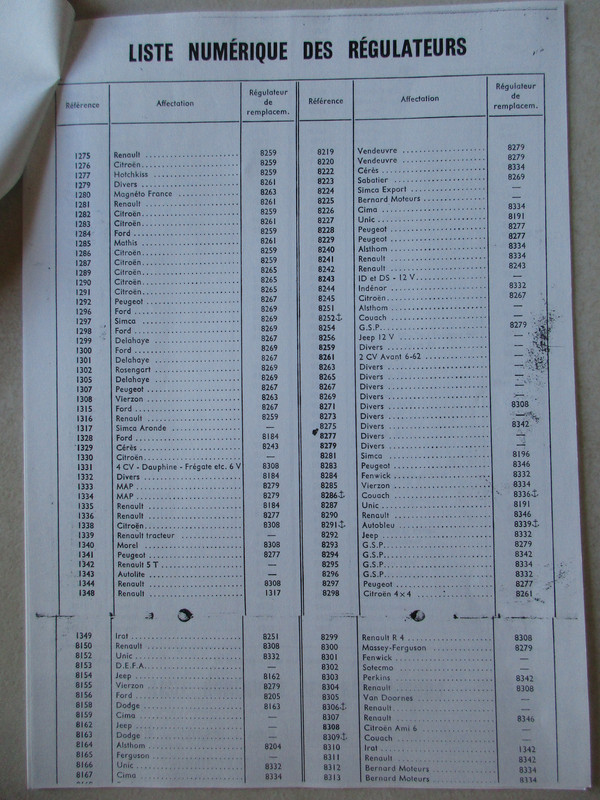 LISTE NUMÉRIQUE DES RÉGULATEURS
Référence Affectation Régulateur de remplacem.
1275 Renault 8259
1276 Citroën 8259
1277 Hotchkiss 8259
1279 Divers 8261
1280 Magnéto France 8263
1281 Renault 8261
1282 Citroën 8259
1283 Citroën 8261
1284 Ford 8259
1285 Mathis 8261
1286 Citroën 8259
1287 Citroën 8259
1289 Citroën 8265
1290 Citroën 8265
1291 Citroën 8265
1292 Peugeot 8267
1296 Ford 8269
1297 Simca 8269
1298 Ford 8267
1299 Delahaye 8267
1300 Ford 8269
1301 Delahaye 8267
1302 Rosengart 8269
1305 Delahaye 8269
1307 Peugeot 8267
1308 Vierzon 8263
1315 Ford 8267
1316 Renault 8259
1317 Simca Aronde —
1328 Ford 8184
1329 Cérès 8243
1330 Citroën —
1331 4 CV - Dauphine - Frégate etc. 6 V 8308
1332 Divers 8184
1333 MAP 8279
1334 MAP 8279
1335 Renault 8184
1336 Renault 8277
1338 Citroën 8308
1339 Renault tracteur —
1340 Morel 8308
1341 Peugeot 8277
1342 Renault 5 T —
1343 Autolite —
1344 Renault 8308
1348 Renault 1317
1349 Irat 8251
8150 Renault 8308
8152 Unic 8332
8153 D.E.F.A. —
8154 Jeep 8162
8155 Vierzon 8279
8156 Ford 8205
8158 Dodge 8163
8159 Cima —
8162 Jeep —
8163 Dodge —
8164 Alsthom 8204
8165 Ferguson —
8166 Unic 8332
8167 Cima 8334
Référence Affectation Régulateur de remplacem.
8219 Vendeuvre 8279
8220 Vendeuvre 8279
8222 Cérès 8334
8223 Sabatier 8269
8224 Simca Export —
8225 Bernard Moteurs —
8226 Cima 8334
8227 Unic 8191
8228 Peugeot 8277
8229 Peugeot 8277
8240 Alsthom 8334
8241 Renault 8334
8242 Renault 8243
8243 ID et DS - 12 V —
8244 Indénor 8332
8245 Citroën 8267
8251 Alsthom —
8252⚓ Couach —
8254 G.S.P. 8279
8256 Jeep 12 V —
8259 Divers —
8261 2 CV Avant 6-62 —
8263 Divers —
8265 Divers —
8267 Divers —
8269 Divers —
8271 Divers 8308
8273 Divers —
8275 Divers 8342
8277 Divers —
8279 Divers —
8281 Simca 8196
8283 Peugeot 8346
8284 Fenwick 8332
8285 Vierzon 8334
8286⚓ Couach 8336⚓
8287 Unic 8191
8290 Renault 8346
8291⚓ Autobleu 8339⚓
8292 Jeep 8332
8293 G.S.P. 8279
8294 G.S.P. 8342
8295 G.S.P. 8334
8296 G.S.P. 8332
8297 Peugeot 8277
8298 Citroën 4×4 8261
8299 Renault R 4 8308
8300 Massey-Ferguson 8279
8301 Fenwick —
8302 Sotecmo —
8303 Perkins 8342
8304 Renault 8308
8305 Van Doornes —
8306⚓ Renault —
8307 Renault 8346
8308 Citroën Ami 6 —
8309⚓ Couach —
8310 Irat 1342
8311 Renault 8342
8312 Bernard Moteurs 8334
8313 Bernard Moteurs 8334